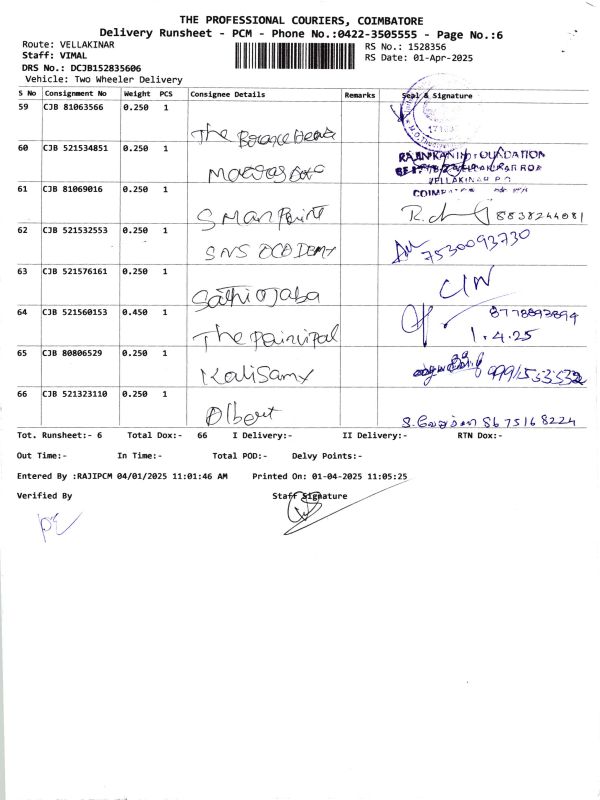 THE PROFESSIONAL COURIERS, COIMBATORE
Delivery Runsheet - PCM - Phone No.:0422-3505555 - Page No.:6
Route: VELLAKINAR
RS No.: 1528356
Staff: VIMAL
RS Date: 01-Apr-2025
DRS No.: DCJB152835606
Vehicle: Two Wheeler Delivery
S No Consignment No Weight PCS Consignee Details Remarks Seal & Signature
59 CJB 81063566 0.250 1 The
60 CJB 521534851 0.250 1
FOUNDATION
VELLAKINAR
61 CJB 81069016 0.250 1 S Man Point 8838244081
62 CJB 521532553 0.250 1 SNS 7530093730
63 CJB 521576161 0.250 1
64 CJB 521560153 0.450 1 The 8778893894
1.4.25
65 CJB 80806529 0.250 1 Kalisamy
66 CJB 521323110 0.250 1 Albert 8675168224
Tot. Runsheet:- 6 Total Dox:- 66 I Delivery:- II Delivery:- RTN Dox:-
Out Time:- In Time:- Total POD:- Delvy Points:-
Entered By :RAJIPCM 04/01/2025 11:01:46 AM Printed On: 01-04-2025 11:05:25
Verified By Staff Signature